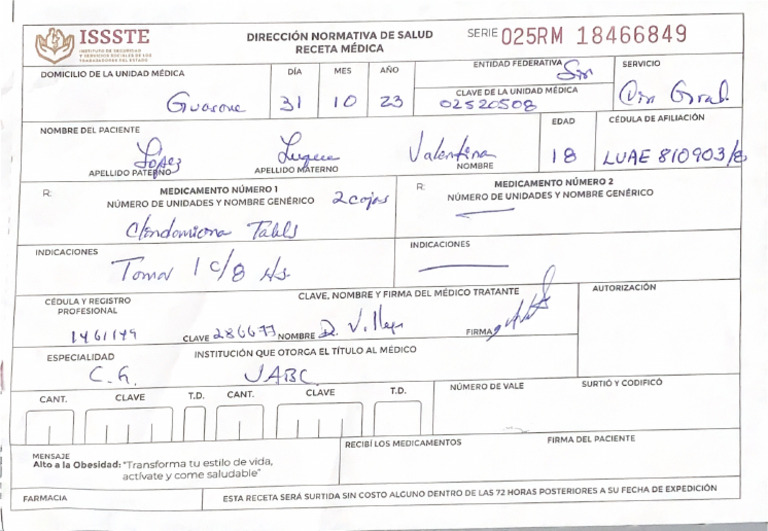 ISSSTE
INSTITUTO DE SEGURIDAD
Y SERVICIOS SOCIALES DE LOS
TRABAJADORES DEL ESTADO
DIRECCIÓN NORMATIVA DE SALUD
RECETA MÉDICA
SERIE 025RM 18466849
DOMICILIO DE LA UNIDAD MÉDICA
Guasave
DÍA MES AÑO
31 10 23
ENTIDAD FEDERATIVA Sin
CLAVE DE LA UNIDAD MÉDICA
02520508
SERVICIO
Gral.
NOMBRE DEL PACIENTE
López Valentina
APELLIDO PATERNO APELLIDO MATERNO NOMBRE
EDAD
18
CÉDULA DE AFILIACIÓN
LUAE 810903/8
R: MEDICAMENTO NÚMERO 1
NÚMERO DE UNIDADES Y NOMBRE GENÉRICO 2 cajas
Tabls
R: MEDICAMENTO NÚMERO 2
NÚMERO DE UNIDADES Y NOMBRE GENÉRICO
INDICACIONES
Tomar 1 c/8 Hs.
INDICACIONES
CÉDULA Y REGISTRO
PROFESIONAL
1461149
CLAVE, NOMBRE Y FIRMA DEL MÉDICO TRATANTE
CLAVE 286677 NOMBRE FIRMA
AUTORIZACIÓN
ESPECIALIDAD
C.G.
INSTITUCIÓN QUE OTORGA EL TÍTULO AL MÉDICO
UABC
CANT. CLAVE T.D. CANT. CLAVE T.D.
NÚMERO DE VALE SURTIÓ Y CODIFICÓ
RECIBÍ LOS MEDICAMENTOS FIRMA DEL PACIENTE
MENSAJE
Alto a la Obesidad: "Transforma tu estilo de vida,
actívate y come saludable"
FARMACIA
ESTA RECETA SERÁ SURTIDA SIN COSTO ALGUNO DENTRO DE LAS 72 HORAS POSTERIORES A SU FECHA DE EXPEDICIÓN